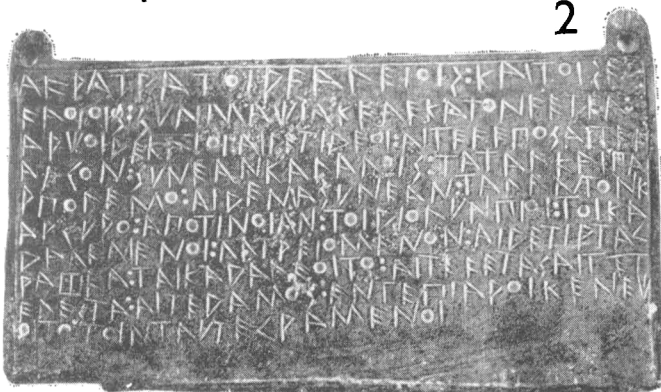 ΑϜΡΑΤΡΑΤΟΙΡϜΑΛΕΙΟΙΣ:ΚΑΙΤΟΙΣΕΡ
ϜΑΟΙΟΙΣ:ΣΥΝΜΑΧΙΑΚΕΑΕΚΑΤΟΝϜΕΤΕΑ:
ΑΡΧΟΙΔΕΚΑΤΟΙ:ΑΙΔΕΤΙΔΕΟΙ:ΑΙΤΕϜΕΠΟΣΑΙΤΕϜ
ΑΡΓΟΝ:ΣΥΝΕΑΝΚΑΛΑΛΟΙΣ:ΤΑΤΑΛΚΑΙΠΑ
ΡΠΟΛΕΜΟ:ΑΙΔΕΜΑΣΥΝΕΑΝ:ΤΑΛΑΝΤΟΝΚ
ΑΡΓΥΡΟ:ΑΠΟΤΙΝΟΙΑΝ:ΤΟΙΔΙΟΛΥΝΠΙΟΙ:ΤΟΙΚΑ
ΔΑΛΕΜΕΝΟΙ:ΛΑΤΡΕΙΟΜΕΝΟΝ:ΑΙΔΕΤΙΡΤΑΓ
ΡΑΦΕΑ:ΤΑΙΚΑΔΑΛΕΟΙΤΟ:ΑΙΤΕϜΕΤΑΣΑΙΤΕΤ
ΕΛΕΣΤΑ:ΑΙΤΕΔΑΜΟΣ:ΕΝΤΕΠΙΑΡΟΙΚΕΝΕΧ
ΟΙΤΟΤΟΙΝΤΑΥΤΕΓΡΑΜΕΝΟΙ
2